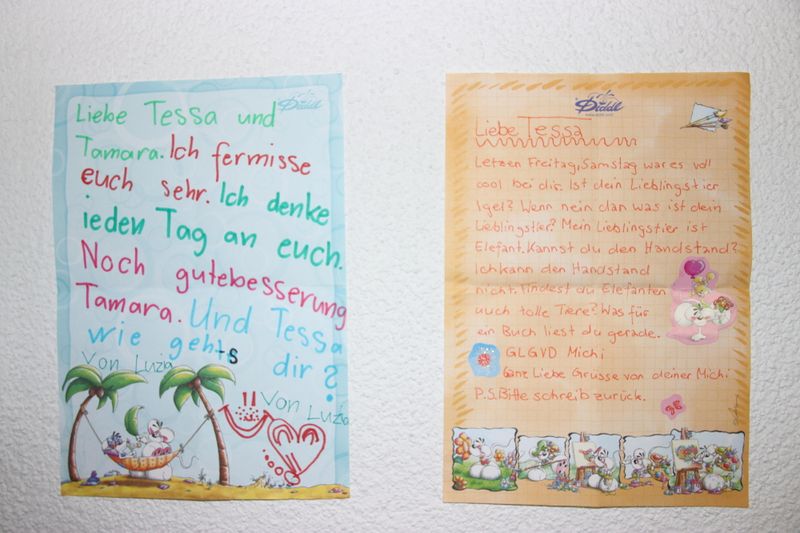 Diddl
Liebe Tessa und
Tamara. Ich fermisse
euch sehr. Ich denke
ieden Tag an euch.
Noch gutebesserung
Tamara. Und Tessa
wie geht's dir?
Von Luzia
Von Luzia
Diddl
Liebe Tessa
Letzen Freitag, Samstag war es voll
cool bei dir. Ist dein Lieblingstier
Igel? Wenn nein dan was ist dein
Lieblingstier? Mein Lieblingstier ist
Elefant. Kannst du den Handstand?
Ich kann den Handstand
nicht. Findest du Elefanten
auch tolle Tiere? Was für
ein Buch liest du gerade.
GLGVD Michi
Ganz Liebe Grüsse von deiner Michi
P.S. Bitte schreib zurück.